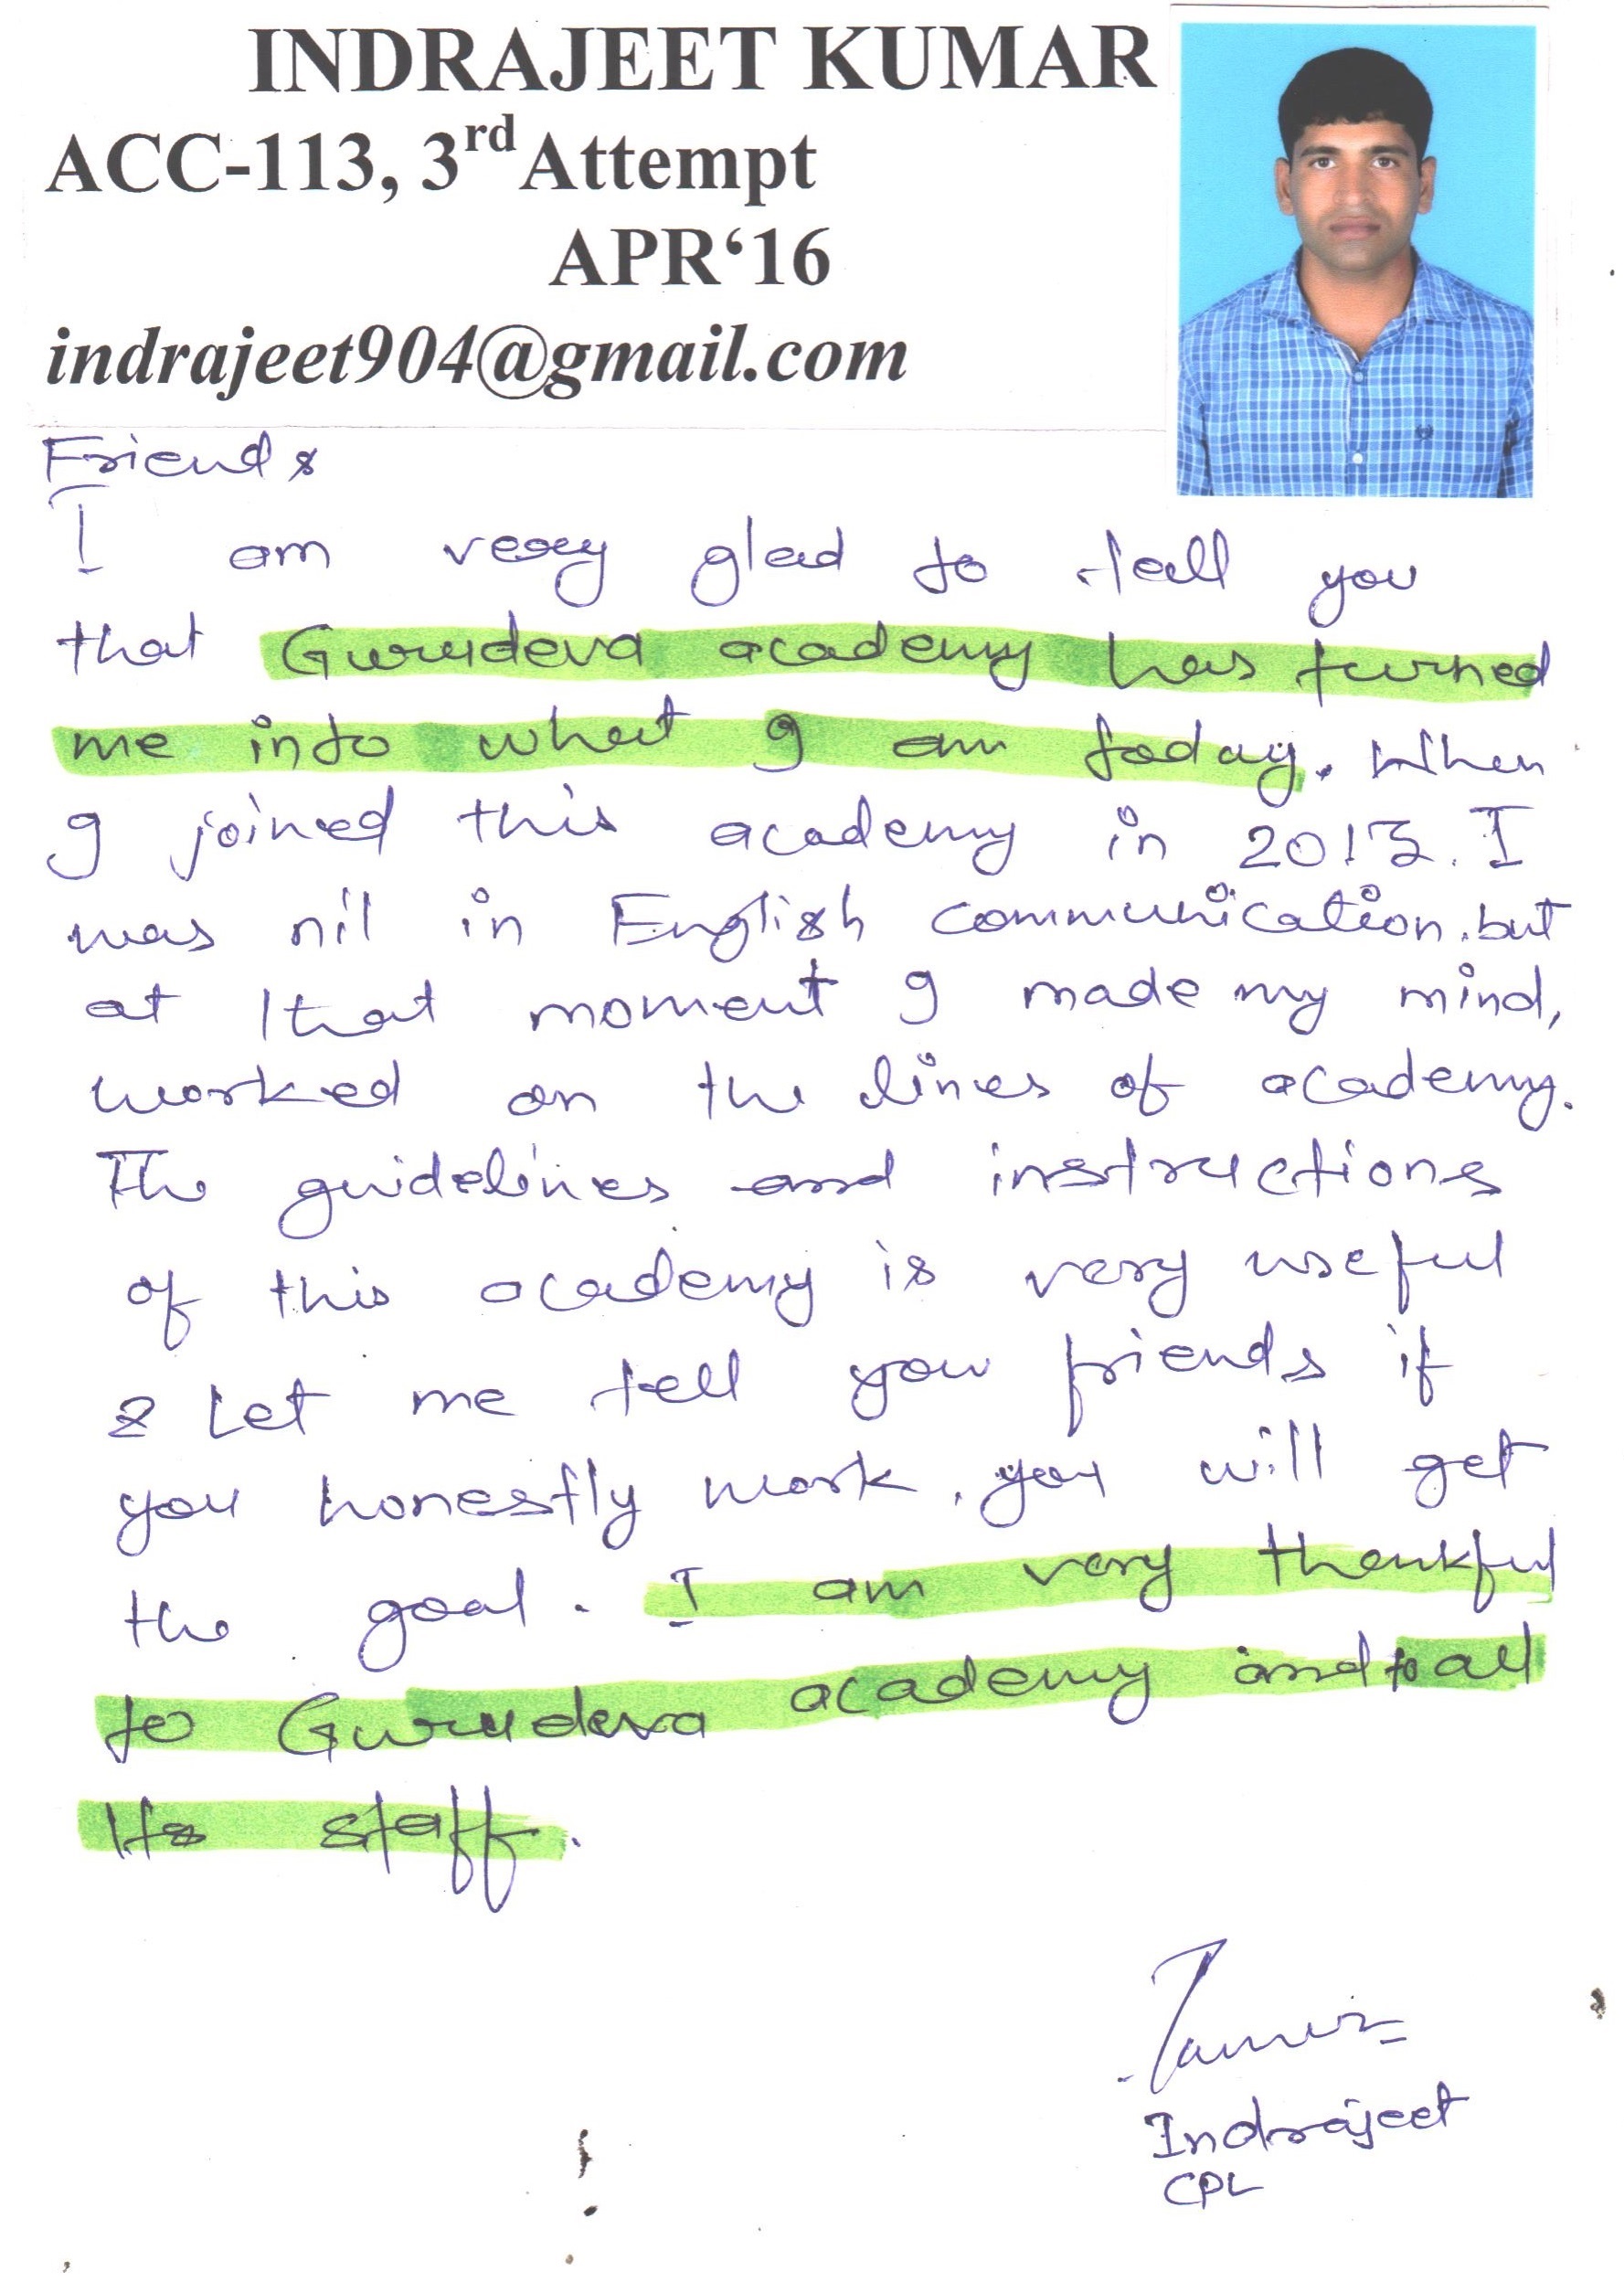 INDRAJEET KUMAR
ACC-113, 3rd Attempt
APR‘16
indrajeet904@gmail.com
Friends
I am very glad to tell you
that Gurudeva academy has turned
me into what I am today. When
I joined this academy in 2013. I
was nil in English communication. but
at that moment I made my mind,
worked on the lines of academy.
The guidelines and instructions
of this academy is very useful
& Let me tell you friends if
you honestly work, you will get
the goal. I am very thankful
to Gurudeva academy and to all
Its staff.
Indrajeet
CPL